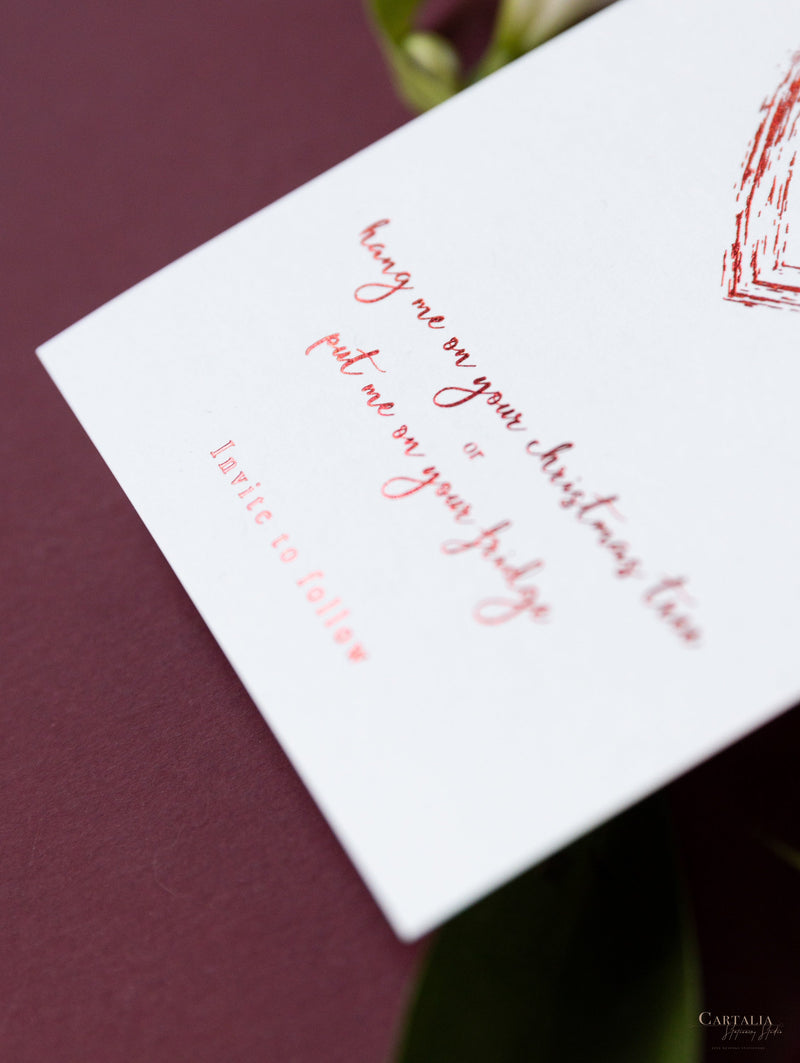 hang me on your christmas tree
or
put me on your fridge
Invite to follow
CARTALIA
Stationery Studio